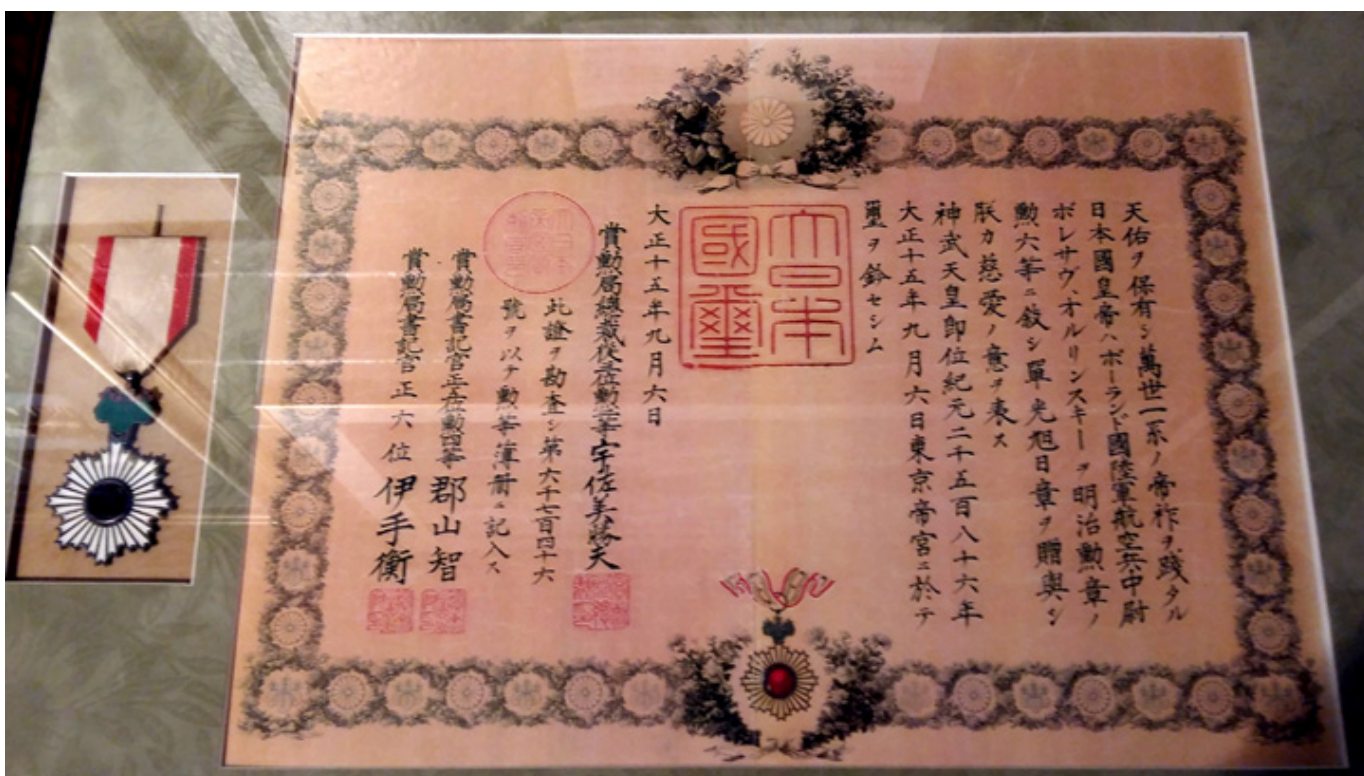 天佑ヲ保有シ萬世一系ノ帝祚ヲ踐タル
日本國皇帝ハポーランド國陸軍航空兵中尉
ボレサヴ、オルリンスキーヲ明治勲章ノ
勲六等ニ敍シ單光旭日章ヲ贈與シ
朕カ慈愛ノ意ヲ表ス
神武天皇即位紀元二千五百八十六年
大正十五年九月六日東京帝宮ニ於テ
璽ヲ鈐セシム
大日本
國璽
大正十五年九月六日
賞勲局總裁從三位勲二等宇佐美勝夫
此證ヲ勘査シ第六千七百四十六
號ヲ以テ勲等簿册ニ記入ス
賞勲局書記官正五位勲四等郡山智
賞勲局書記官正六位伊手衡